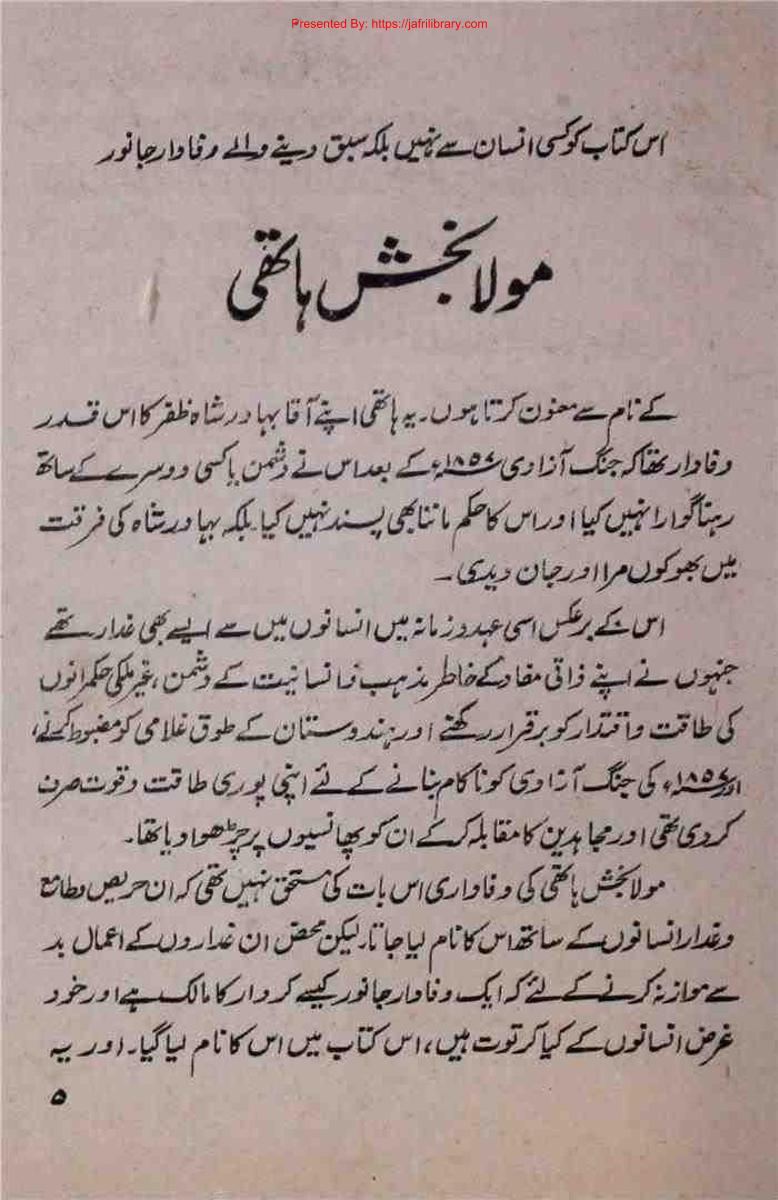 Presented By: https://jafrilibrary.com
اس کتاب کو کسی انسان سے نہیں بلکہ سبق دینے والے وفادار جانور
مولا بخش ہاتھی
کے نام سے معنون کرتا ہوں۔ یہ ہاتھی اپنے آقا بہادر شاہ ظفر کا اس قدر
وفادار تھا کہ جنگ آزادی ۱۸۵۷ء کے بعد اس نے دشمن یا کسی دوسرے کے ساتھ
رہنا گوارا نہیں کیا اور اس کا حکم ماننا بھی پسند نہیں کیا۔ بلکہ بہادر شاہ کی فرقت
میں بھوکوں مرا اور جان دیدی۔
اس کے برعکس اسی عہد و زمانہ میں انسانوں میں سے ایسے بھی غدار تھے
جنہوں نے اپنے ذاتی مفاد کے خاطر مذہب و انسانیت کے دشمن، غیر ملکی حکمرانوں
کی طاقت و اقتدار کو برقرار رکھنے اور ہندوستان کے طوق غلامی کو مضبوط کرنے،
اور ۱۸۵۷ء کی جنگ آزادی کو ناکام بنانے کے لئے اپنی پوری طاقت و قوت صرف
کر دی تھی اور مجاہدین کا مقابلہ کر کے ان کو پھانسیوں پر چڑھوا دیا تھا۔
مولا بخش ہاتھی کی وفاداری اس بات کی مستحق نہیں تھی کہ ان حریص و طامع
و غدار انسانوں کے ساتھ اس کا نام لیا جاتا، لیکن محض ان غداروں کے اعمال بد
سے موازنہ کرنے کے لئے کہ ایک وفادار جانور کیسے کردار کا مالک ہے اور خود
غرض انسانوں کے کیا کرتوت ہیں، اس کتاب میں اس کا نام لیا گیا۔ اور یہ
۵